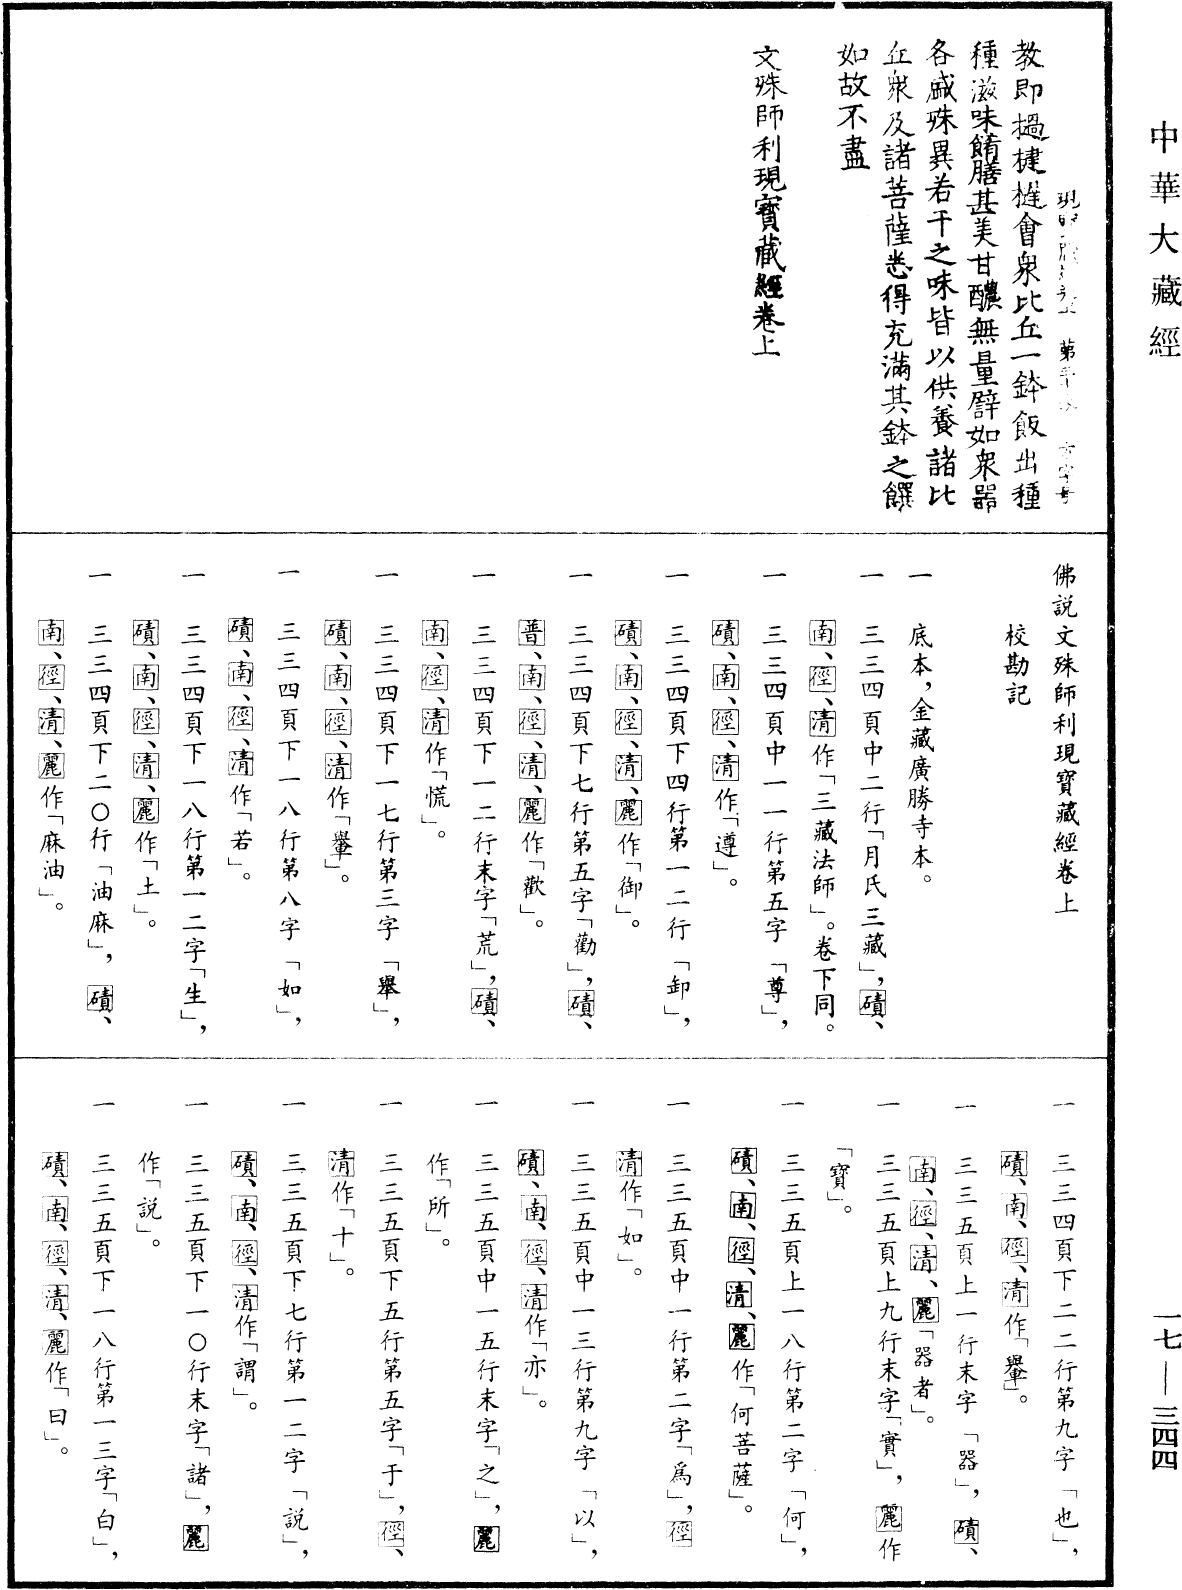 中華大藏經
教即撾揵槌會衆比丘一鉢飯出種
種滋味餚膳甚美甘醲無量譬如衆器
各盛殊異若干之味皆以供養諸比
丘衆及諸菩薩悉得充滿其鉢之饌
如故不盡
文殊師利現寶藏經卷上
佛説文殊師利現寶藏經卷上
校勘記
一 底本，金藏廣勝寺本。
一 三三四頁中二行「月氏三藏」，磧、
南、徑、清作「三藏法師」。卷下同。
一 三三四頁中一一行第五字「尊」，
磧、南、徑、清作「遵」。
一 三三四頁下四行第一二行「卸」，
磧、南、徑、清、麗作「御」。
一 三三四頁下七行第五字「勸」，磧、
普、南、徑、清、麗作「歡」。
一 三三四頁下一二行末字「荒」，磧、
南、徑、清作「慌」。
一 三三四頁下一七行第三字「舉」，
磧、南、徑、清作「轝」。
一 三三四頁下一八行第八字「如」，
磧、南、徑、清作「若」。
一 三三四頁下一八行第一二字「生」，
磧、南、徑、清、麗作「土」。
一 三三四頁下二〇行「油麻」，磧、
南、徑、清、麗作「麻油」。
一 三三四頁下二二行第九字「也」，
磧、南、徑、清作「轝」。
一 三三五頁上一行末字「器」，磧、
南、徑、清、麗「器者」。
一 三三五頁上九行末字「實」，麗作
「寶」。
一 三三五頁上一八行第二字「何」，
磧、南、徑、清、麗作「何菩薩」。
一 三三五頁中一行第二字「爲」，徑
清作「如」。
一 三三五頁中一三行第九字「以」，
磧、南、徑、清作「亦」。
一 三三五頁中一五行末字「之」，麗
作「所」。
一 三三五頁下五行第五字「于」，徑、
清作「十」。
一 三三五頁下七行第一二字「説」，
磧、南、徑、清作「謂」。
一 三三五頁下一〇行末字「諸」，麗
作「説」。
一 三三五頁下一八行第一三字「白」，
磧、南、徑、清、麗作「曰」。
一七—三四四